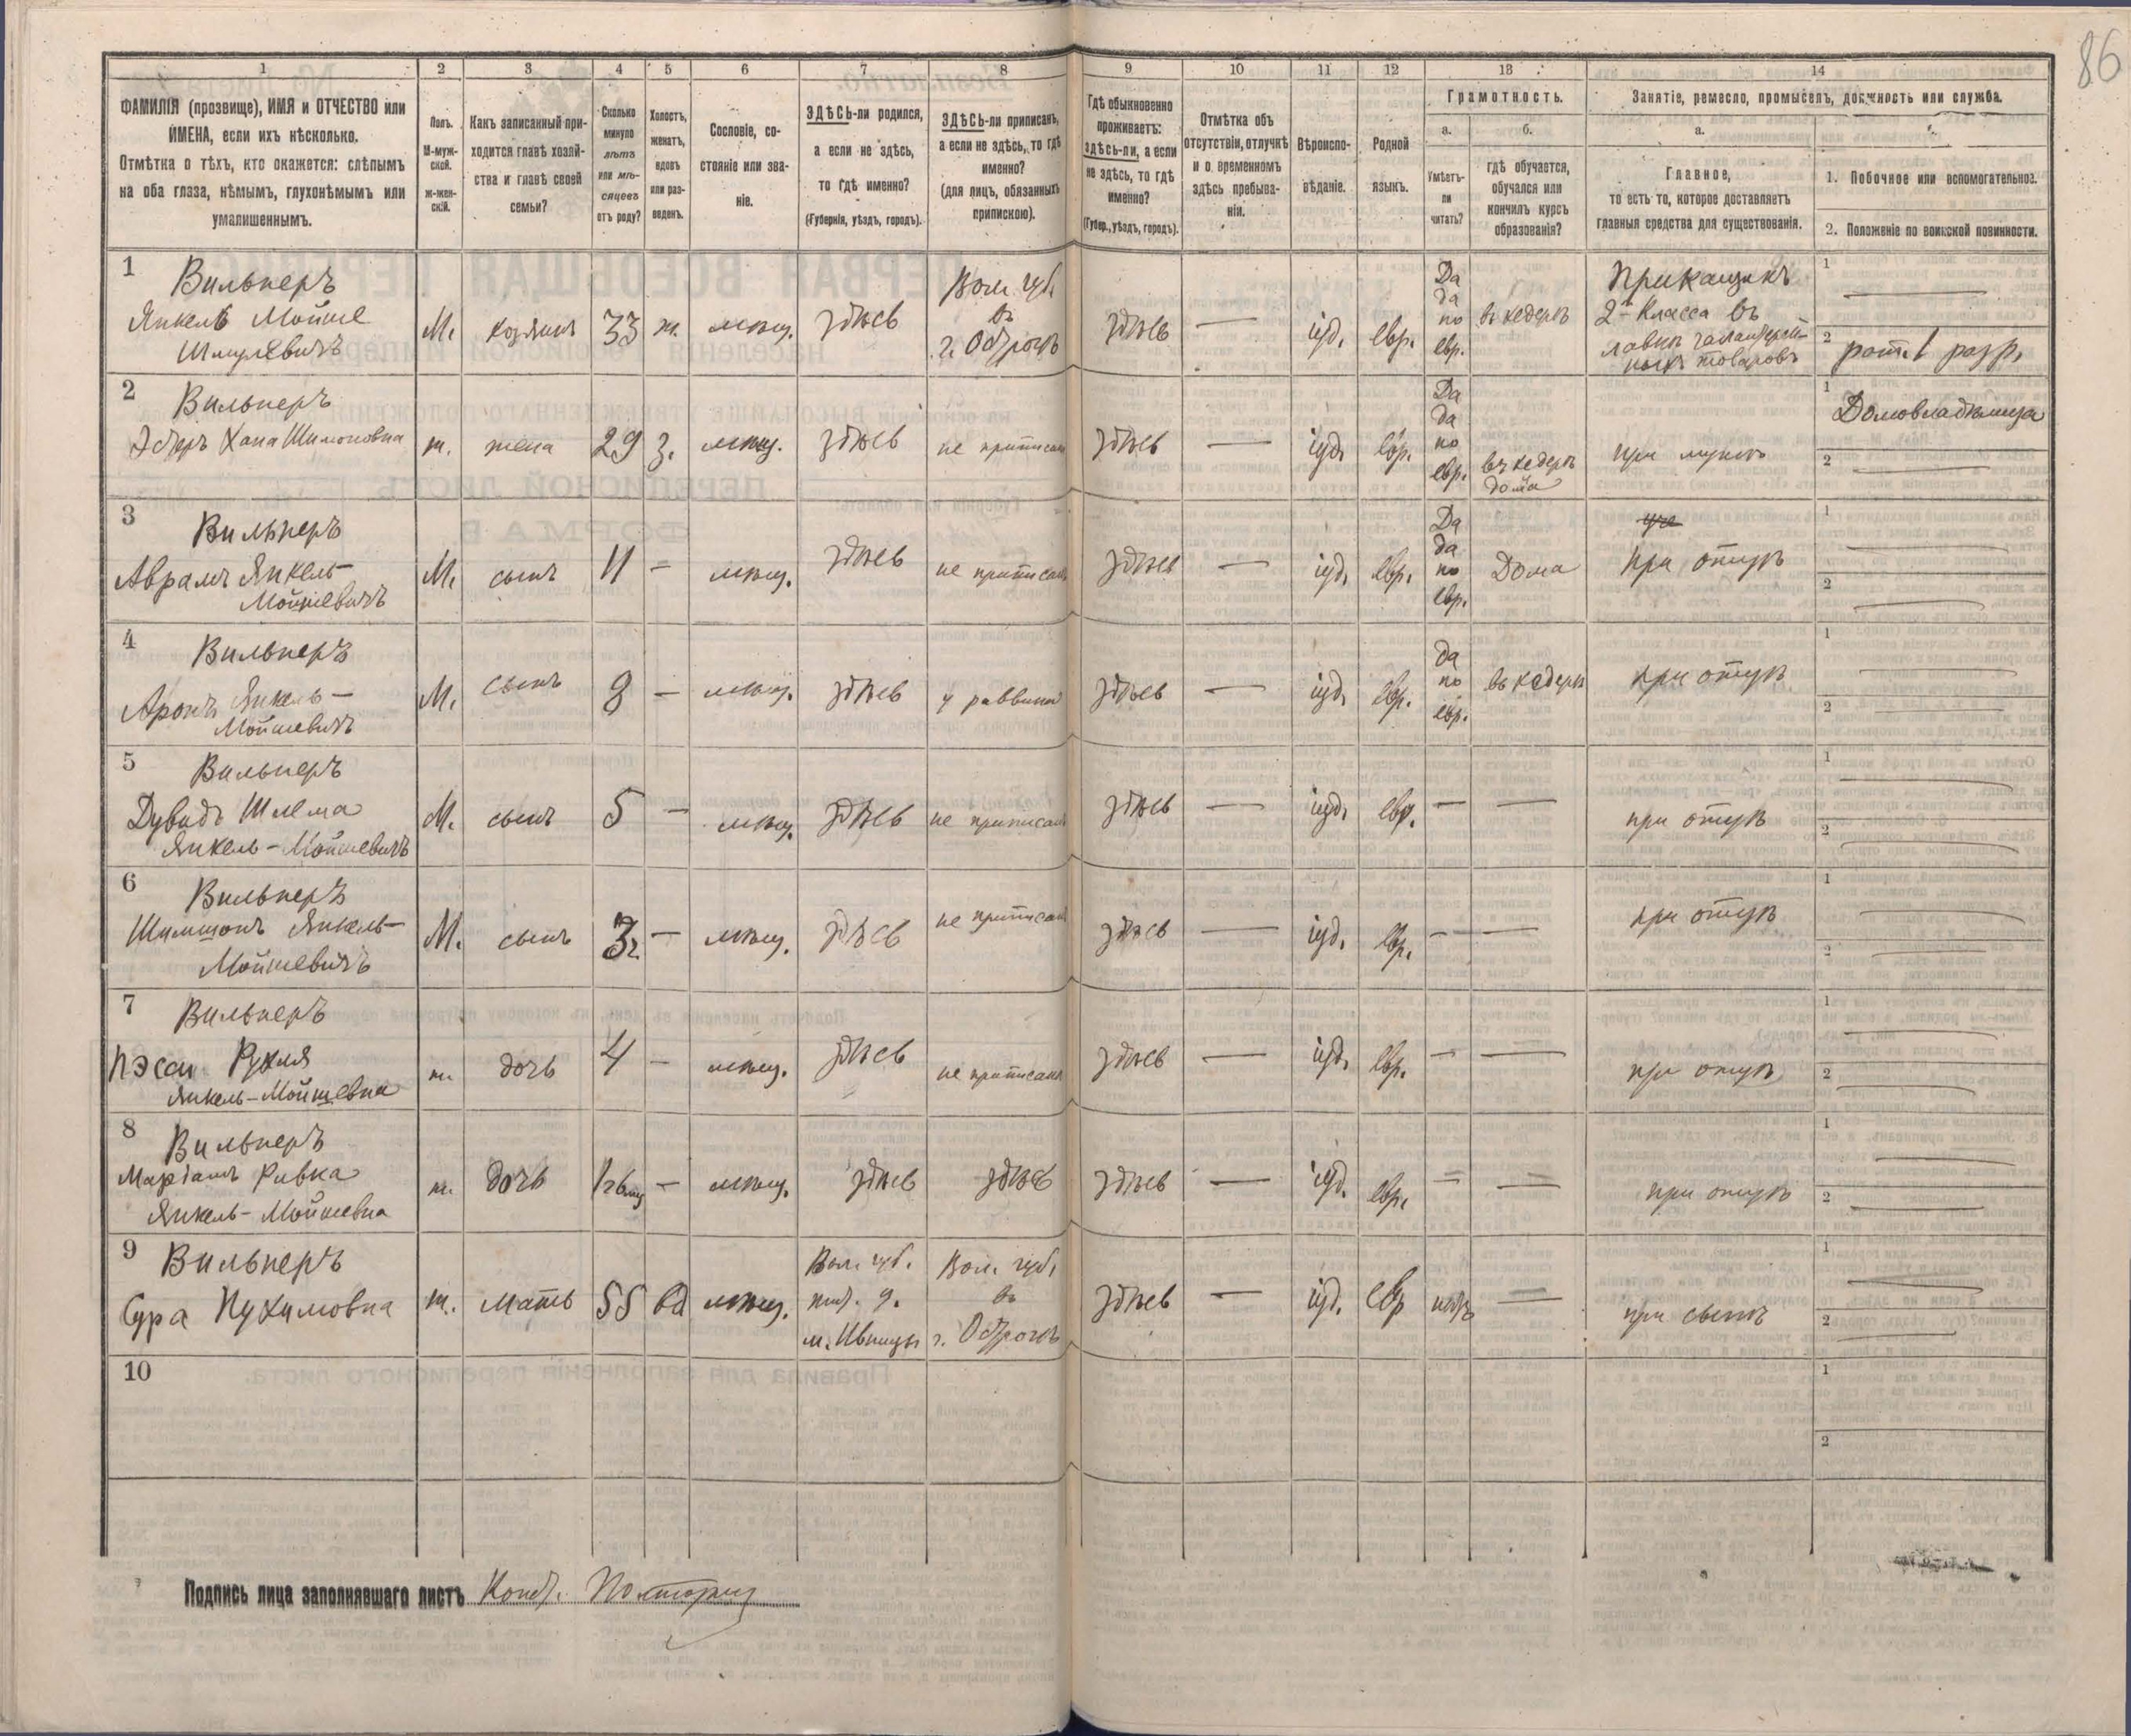 86
1 2 3 4 5 6 7 8 9 10 11 12 13 14
ФАМИЛІЯ (прозвище), ИМЯ и ОТЧЕСТВО или
ИМЕНА, если ихъ нѣсколько.
Отмѣтка о тѣхъ, кто окажется: слѣпымъ
на оба глаза, нѣмымъ, глухонѣмымъ или
умалишеннымъ.
Полъ.
М-муж-
ской.
ж-жен-
скій.
Какъ записанный при-
ходится главѣ хозяй-
ства и главѣ своей
семьи?
Сколько
минуло
лѣтъ
или мѣ-
сяцевъ
отъ роду?
Холостъ,
женатъ,
вдовъ
или раз-
веденъ.
Сословіе, со-
стояніе или зва-
ніе.
ЗДѢСЬ-ли родился,
а если не здѣсь,
то гдѣ именно?
(Губернія, уѣздъ, городъ).
ЗДѢСЬ-ли приписанъ,
а если не здѣсь, то гдѣ
именно?
(для лицъ, обязанныхъ
припискою).
Гдѣ обыкновенно
проживаетъ:
здѣсь-ли, а если
не здѣсь, то гдѣ
именно?
(Губер., уѣздъ, городъ).
Отмѣтка объ
отсутствіи, отлучкѣ
и о временномъ
здѣсь пребыва-
ніи.
Вѣроиспо-
вѣданіе.
Родной
языкъ.
Грамотность.
а. б.
Умѣетъ-
ли
читать?
гдѣ обучается,
обучался или
кончилъ курсъ
образованія?
Занятіе, ремесло, промыселъ, должность или служба.
а.
Главное,
то есть то, которое доставляетъ
главныя средства для существованія.
1. Побочное или вспомогательное.
2. Положеніе по воинской повинности.
1 Вильнеръ
Янкель Мойше
Шмулевичъ
М. хозяинъ 33 ж. мѣщ. здѣсь
Вол. губ.
въ
г. Острогѣ
здѣсь — іуд. евр.
Да
да
по
евр.
въ хедерѣ
Прикащикъ
2 класса въ
лавкѣ галантерей-
ныхъ товаровъ
1 —
2 рат. 1 разр.
2 Вильнеръ
Эстеръ Хана Шимоновна
ж. жена 29 з. мѣщ. здѣсь не приписана здѣсь — іуд. евр.
Да
да
по
евр.
въ хедерѣ
дома
при мужѣ
1 Домовладѣлица
2 —
3 Вильнеръ
Аврамъ Янкель-
Мойшевичъ
М. сынъ 11 — мѣщ. здѣсь не приписанъ здѣсь — іуд. евр.
Да
да
по
евр.
Дома
уче
при отцѣ
1 —
2 —
4 Вильнеръ
Аронъ Янкель-
Мойшевичъ
М. сынъ 8 — мѣщ. здѣсь у раввина здѣсь — іуд. евр.
да
по
евр.
въ хедерѣ
при отцѣ
1 —
2 —
5 Вильнеръ
Дувидъ Шлема
Янкель-Мойшевичъ
М. сынъ 5 — мѣщ. здѣсь не приписанъ здѣсь — іуд. евр. — — при отцѣ
1 —
2 —
6 Вильнеръ
Шимшонъ Янкель-
Мойшевичъ
М. сынъ 3г. — мѣщ. здѣсь не приписанъ здѣсь — іуд. евр. — — при отцѣ
1 —
2 —
7 Вильнеръ
Пэсси Рухля
Янкель-Мойшевна
ж. дочь 4 — мѣщ. здѣсь не приписана здѣсь — іуд. евр. — — при отцѣ
1 —
2 —
8 Вильнеръ
Маріамъ Ривка
Янкель-Мойшевна
ж. дочь — мѣщ. здѣсь здѣсь здѣсь — іуд. евр. — — при отцѣ
1 —
2 —
9 Вильнеръ
Сура Нухимовна
ж. мать 55 вд мѣщ.
Вол. губ.
жит. у.
м. Ивницы
Вол. губ.
въ
г. Острогѣ
здѣсь — іуд. евр нѣтъ — при сынѣ
1 —
2 —
10
1
2
Подпись лица заполнявшаго листъ Конст.